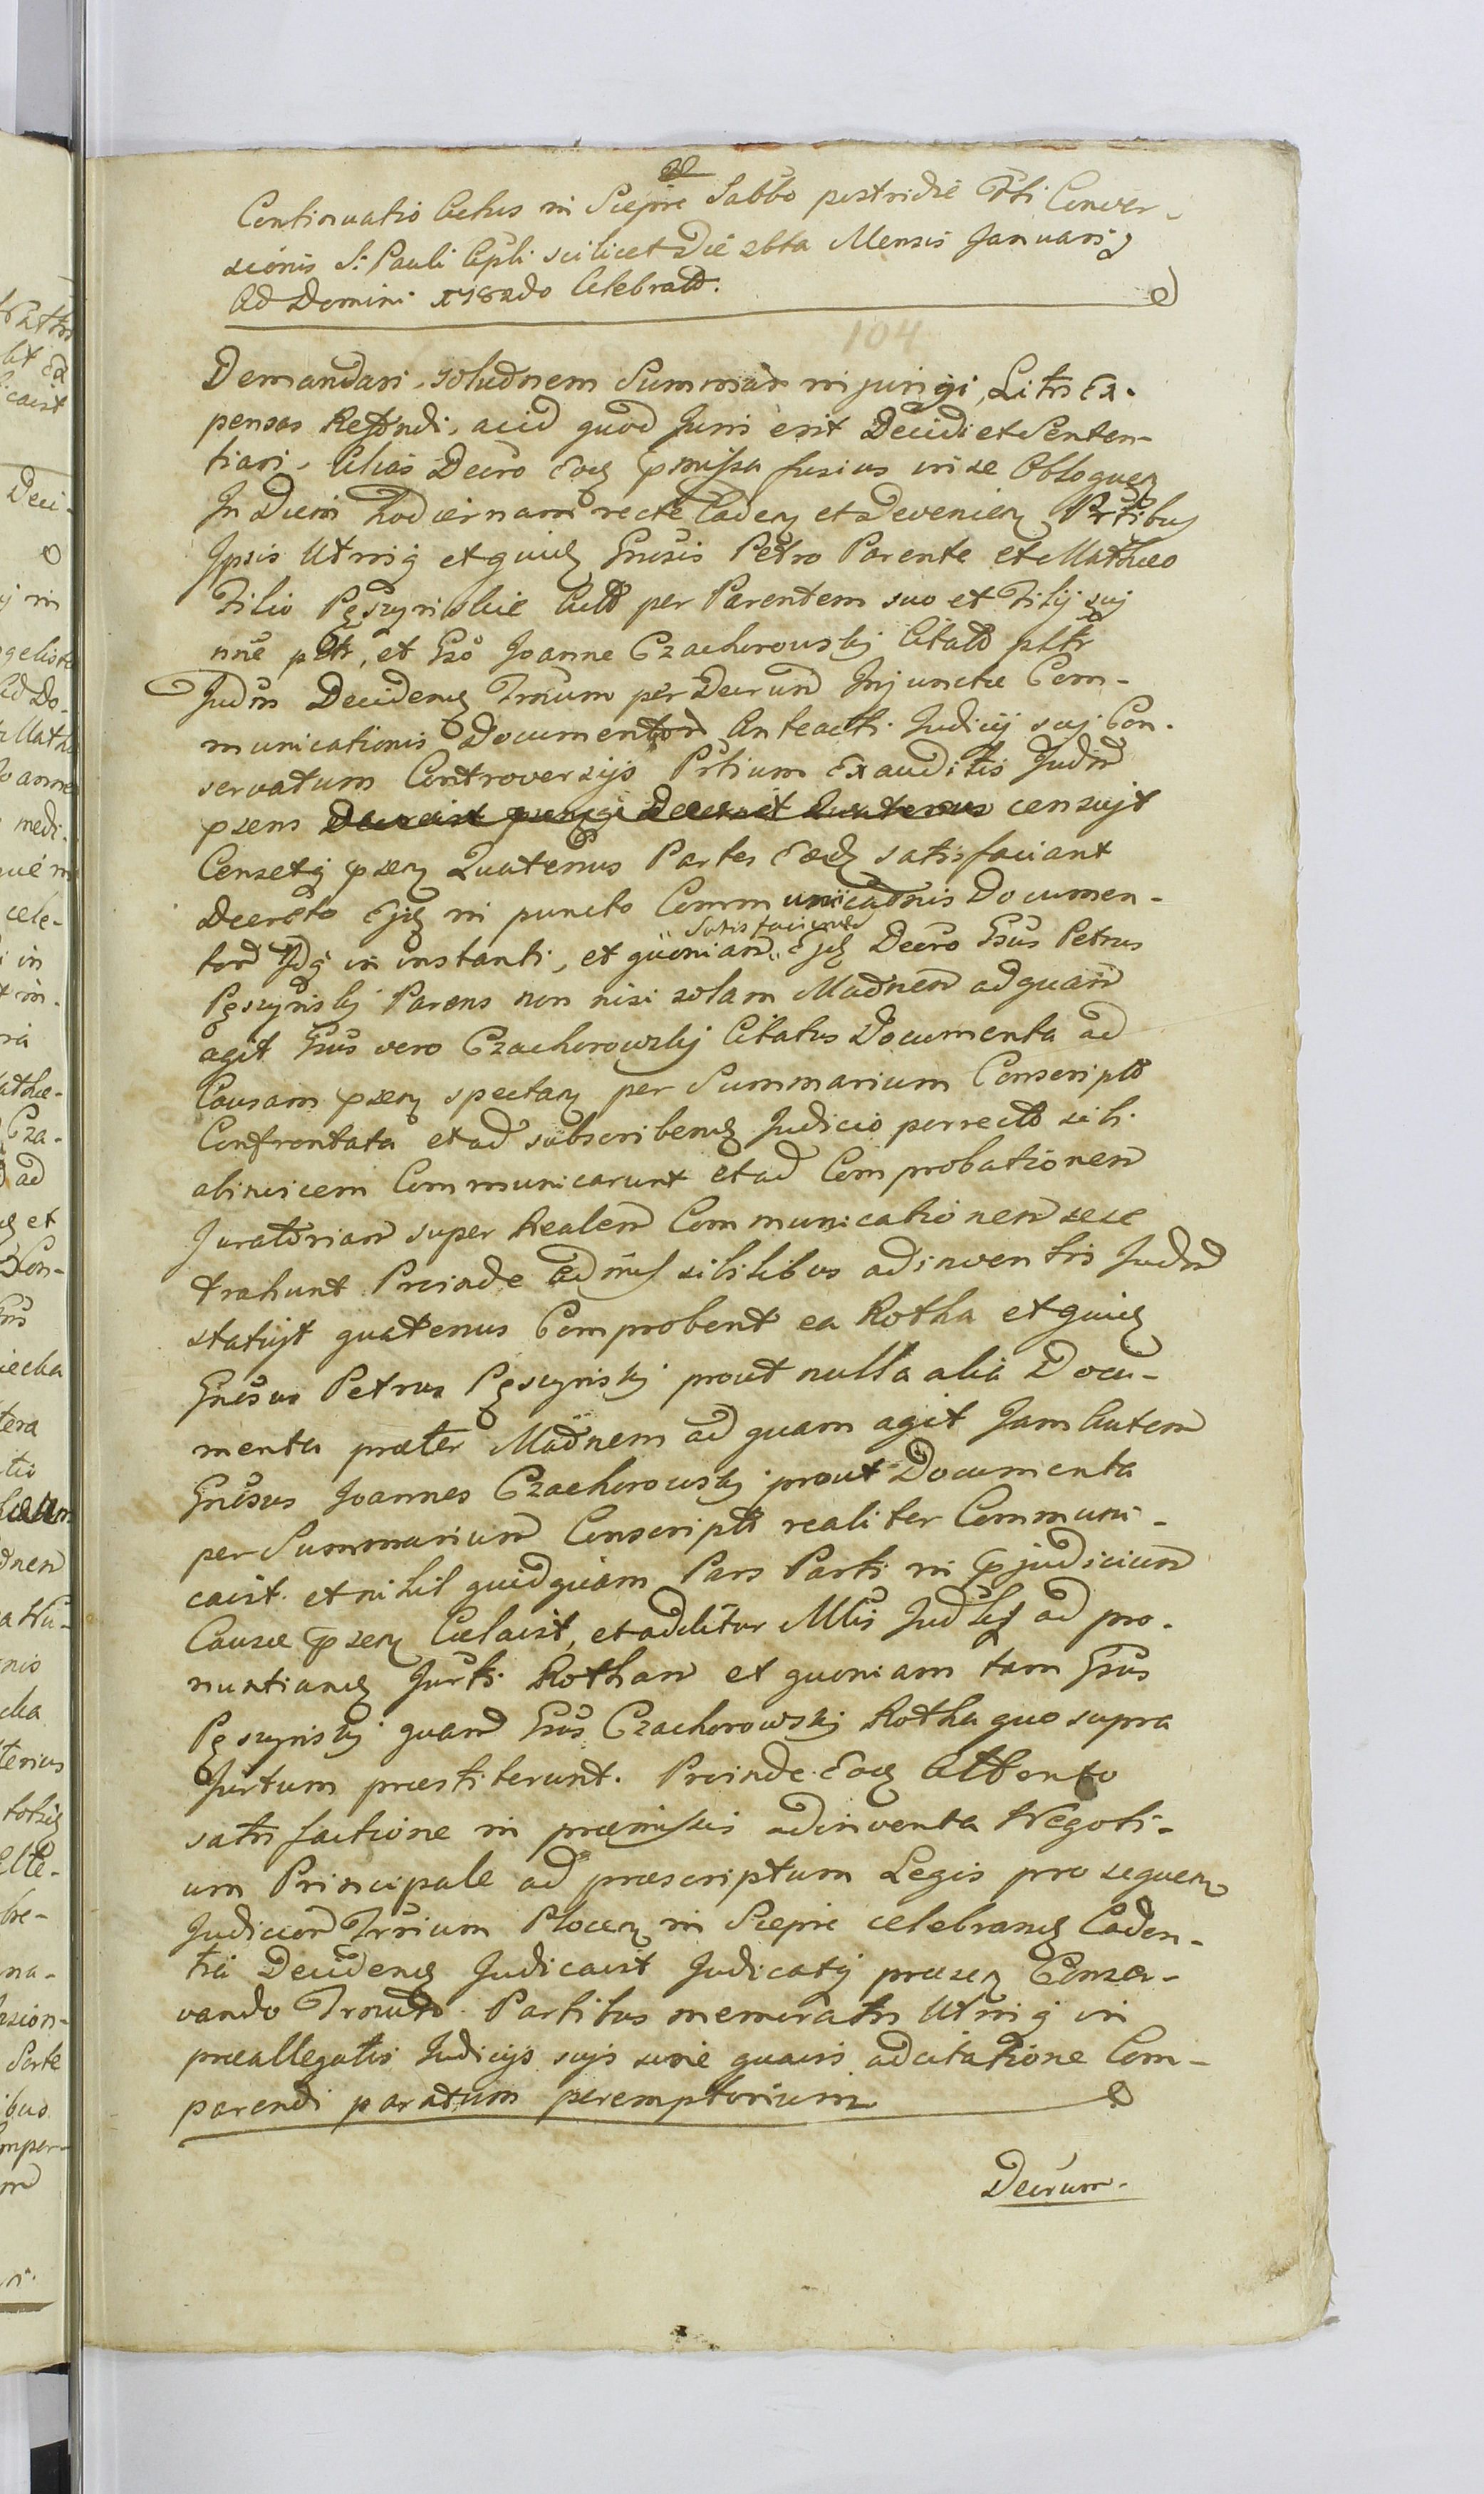 Continuatio Actus in Sieprc Sabbo postridie Fsti Conver-
sionis S: Pauli Apli scilicet Die 26ta Mensis Januarij
Ad Domini 1782do Celebrati.
104
Demandari, solutnem Summar injungi, Litis Ex-
pensas Refundi, acid quod Juris erit Decidi et Senten-
tiari. Alias Decro Eodq pmissa fusius in se Obloquen
In Diem hodiernam recte Caden et Devenien Prtibus
Ipsis Utrinq et quidq Gnrsis Petro Parente et Matheo
Filio Pęszynskie Actt per Parentem suo et Filij suj
nne pltr, et Gso Joanne Czachorowskj Citato pltr
Judm Decidenq Trmum per Decrum Injunctae Com-
municationis Documentor Anteacti Judicij suj Con-
servatum Controversijs Prtium Exauditis Judm
psens censujt
Censetq psen Quatenus Partes Eaeq satisfaciant
Decreto Ejq in puncto Communicatnis Documen-
tor Idq in instanti, et quoniam Ejq Decro Gsus Petrus
satisfaciend
Pęszynskj Parens non nisi solam Madnem ad quam
agit Gsus vero Czachorowskj Citatus Documenta ad
Causam psen spectan per Summarium Conscripta
Confrontata et ad subscribenq Judicio porrecta sibi
abinvicem Communicarunt et ad Comprobationem
Juratoriam super Realem Communicationem sese
trahunt Proinde sibilibus adinventis Judm
statujt quatenus Comprobent ea Rotha et quidq
Gnrsus Petrus Pęszynskj prout nulla alia Docu-
menta praeter Madnem ad quam agit Jam Autem
Gnrsus Joannes Czachorowskj prout Documenta
per Summarium Conscripta realiter Communi-
cavit et nihil quidquam Pars Parti in pjudicium
Causae psen Celavit, et additur Mlis Judlis ad pro-
nuntianq Jurti Rotham et quoniam tam Gsus
Pęszynskj quam Gsus Czachorowskj Rotha quo supra
Jurtum praestiterunt. Proinde Eodq Attento
satisfactione in praemissis adinventa Negoti-
um Principale ad praescriptum Legis prosequen
Judicior Trrium Plocen in Sieprc celebranq Caden-
tia Decidenq Judicavit Judicatq praesen Conser-
vando Trmum Partibus memoratis Utrinq in
praeallegatis Judicijs sujs sine quavis adcitatione Com-
parendi paratum peremptorium
Decrum.